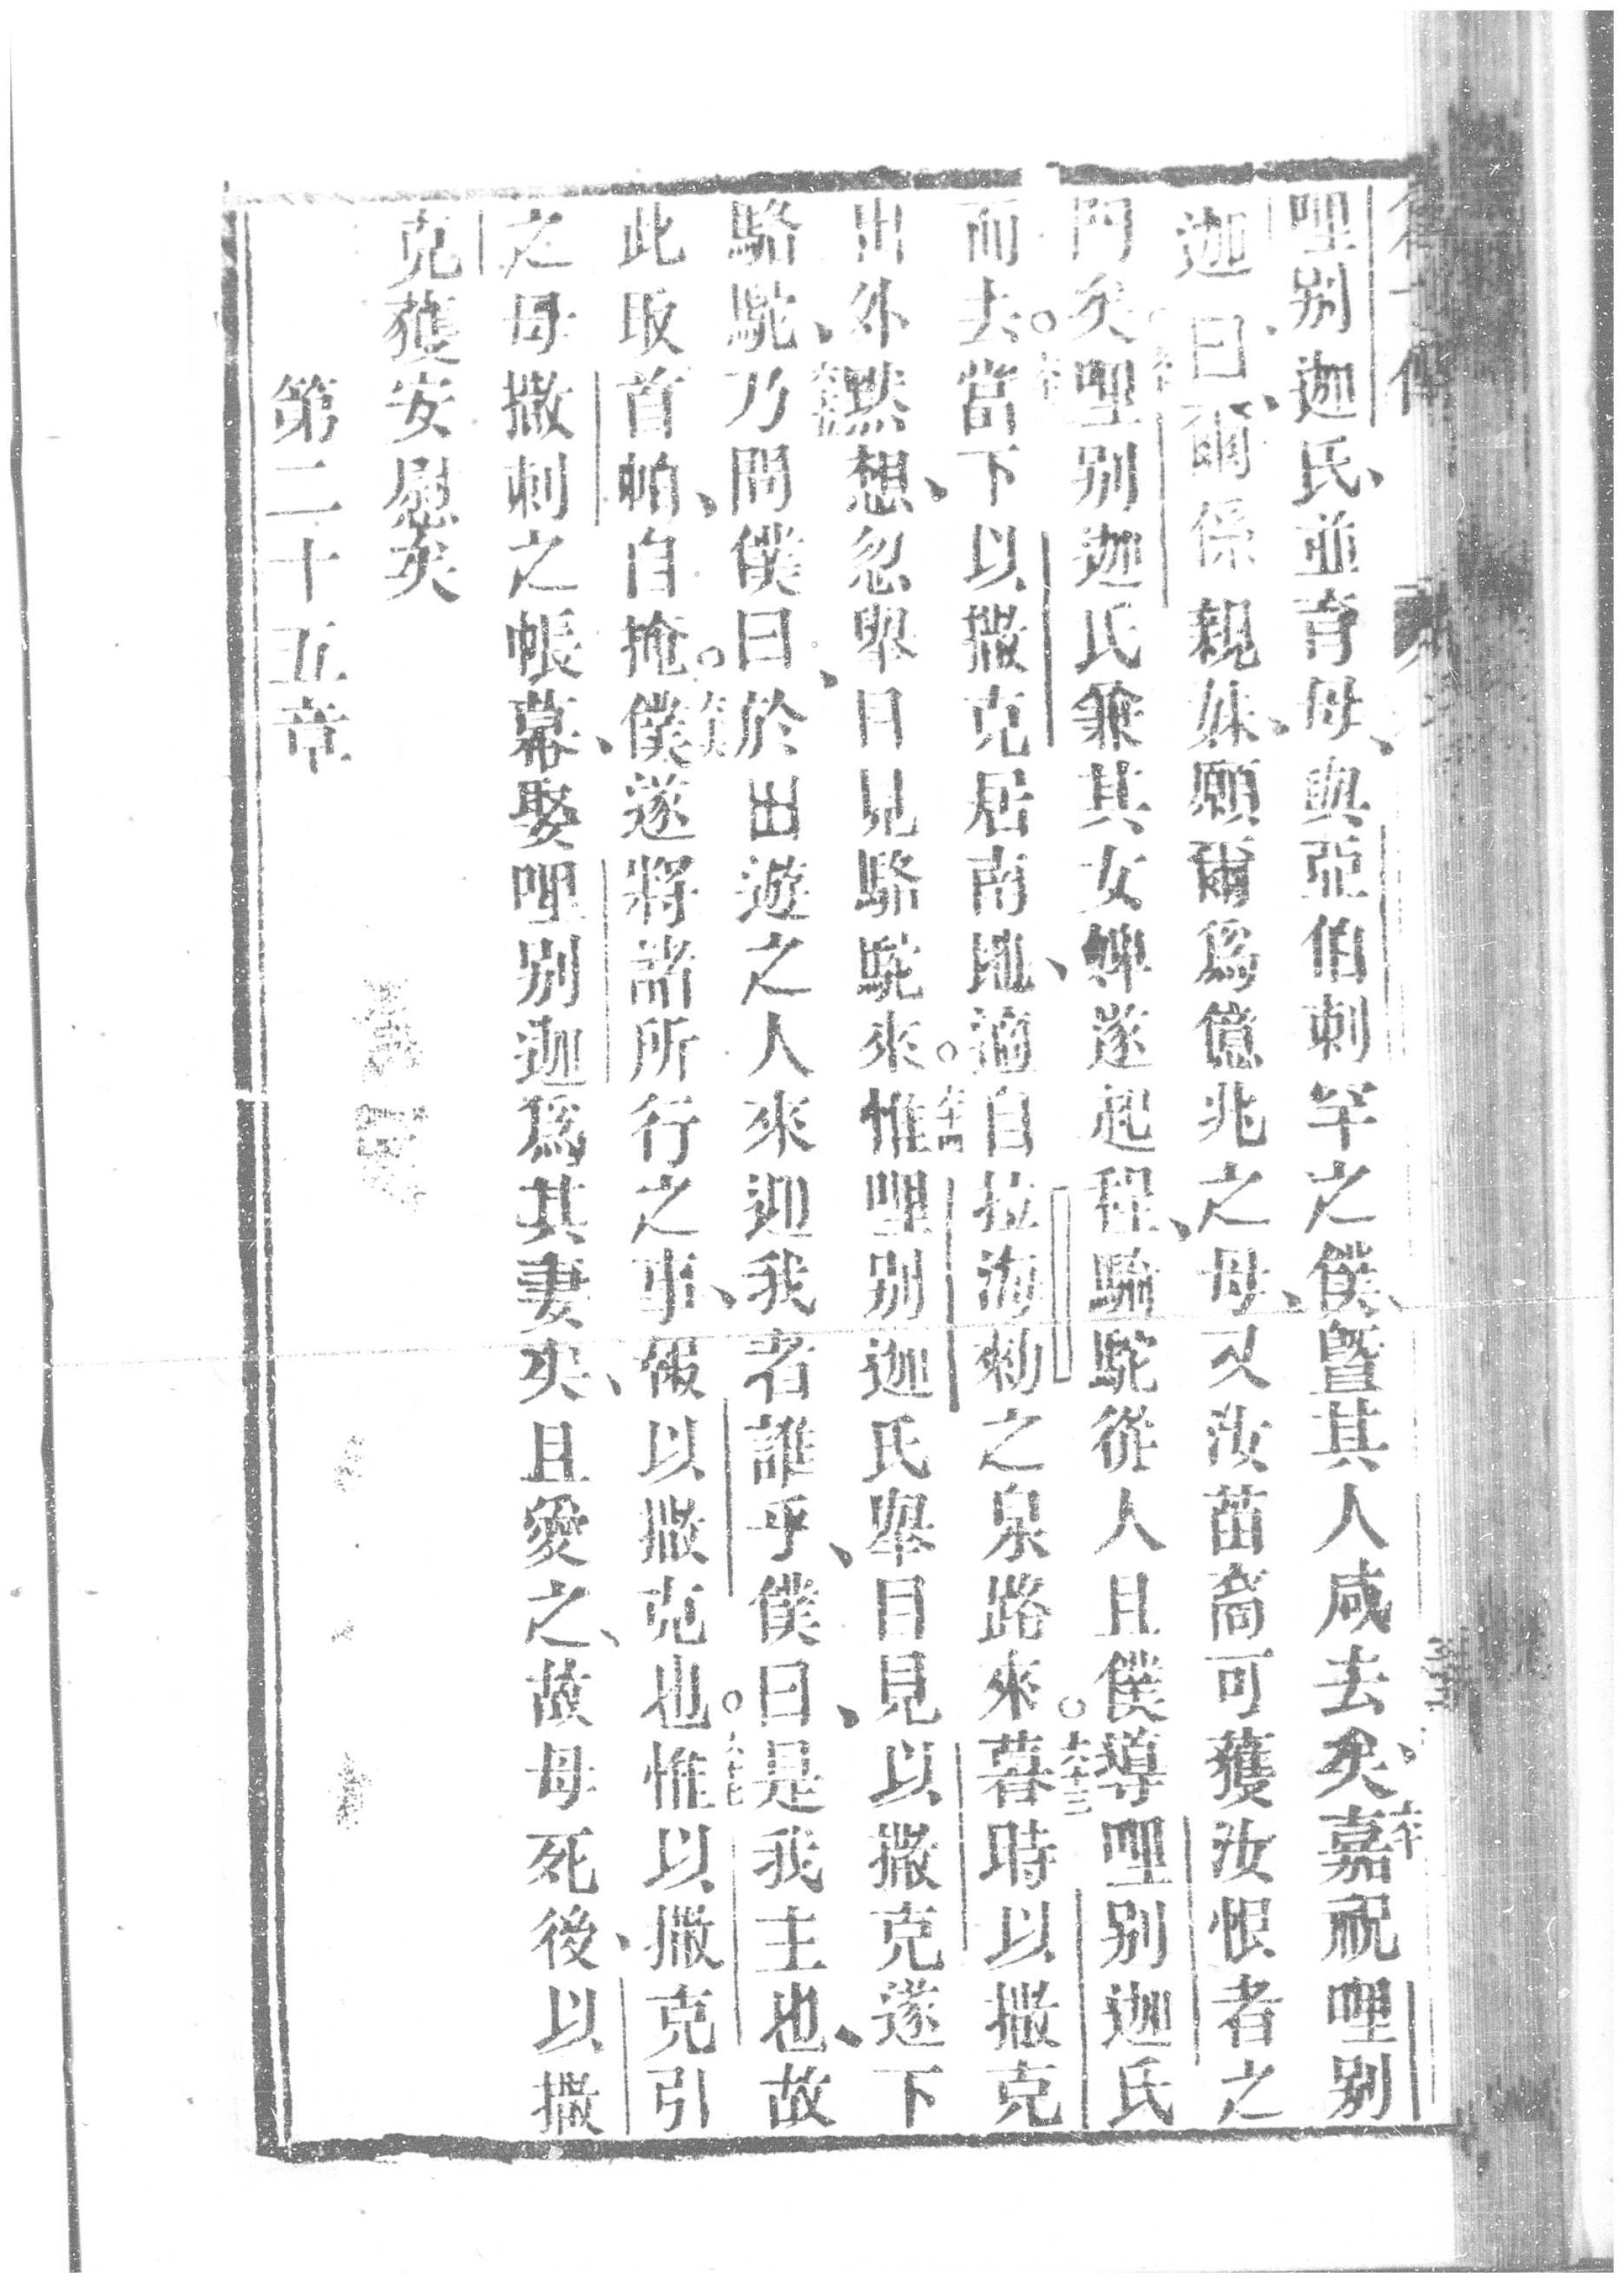 哩别迦氏、並育母、與亞伯剌罕之僕、曁其人咸去矣、六十嘉祝哩别
迦曰、爾係親妹、願爾爲億兆之母、又汝苗裔可獲汝恨者之
門矣。哩别迦氏兼其女婢遂起程、騎駝從人且僕導哩别迦氏
而去。當下以撒克居南地、適自拉海勑之泉路來。六十三暮時以撒克
出外黙想、忽舉目見駱駝來。六十四惟哩别迦氏舉目見以撒克遂下
駱駝、乃問僕曰、於出遊之人來迎我者誰乎、僕曰、是我主也、故
此取首帕、自掩。僕遂將諸所行之事、報以撒克也。六十七惟以撒克引
之母撒剌之帳幕、娶哩别迦爲其妻矣、且愛之、故母死後、以撒
克獲安慰矣
第二十五章